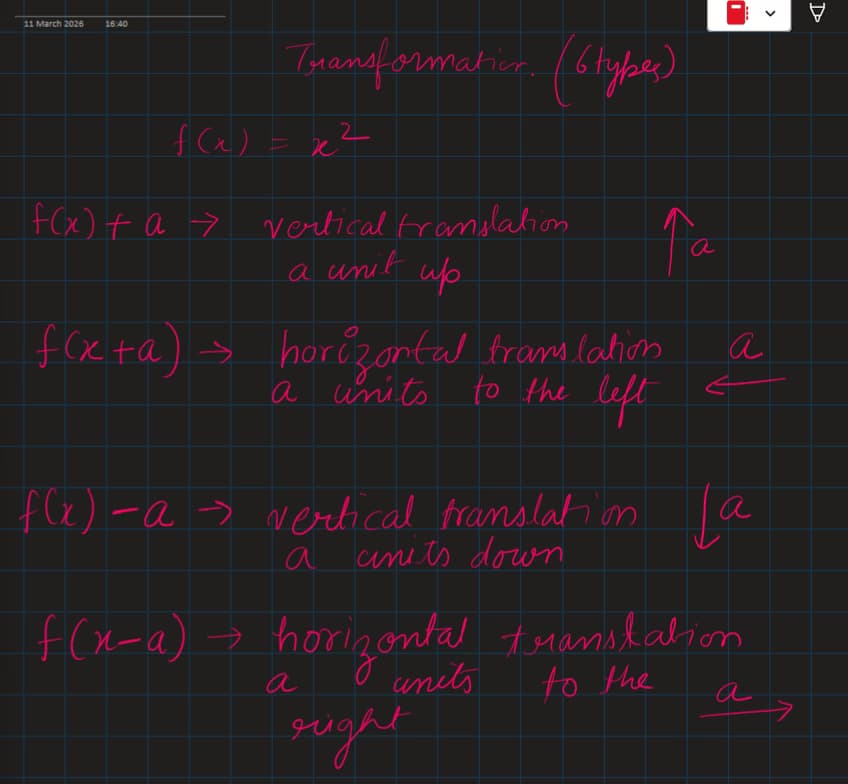 11 March 2026 16:40
Transformation. (6 types)
f(x) = x²
f(x) + a → vertical translation ↑ a
a unit up
f(x+a) → horizontal translation a
a units to the left ←
f(x) - a → vertical translation ↓ a
a units down
f(x-a) → horizontal translation
a units to the a →
right